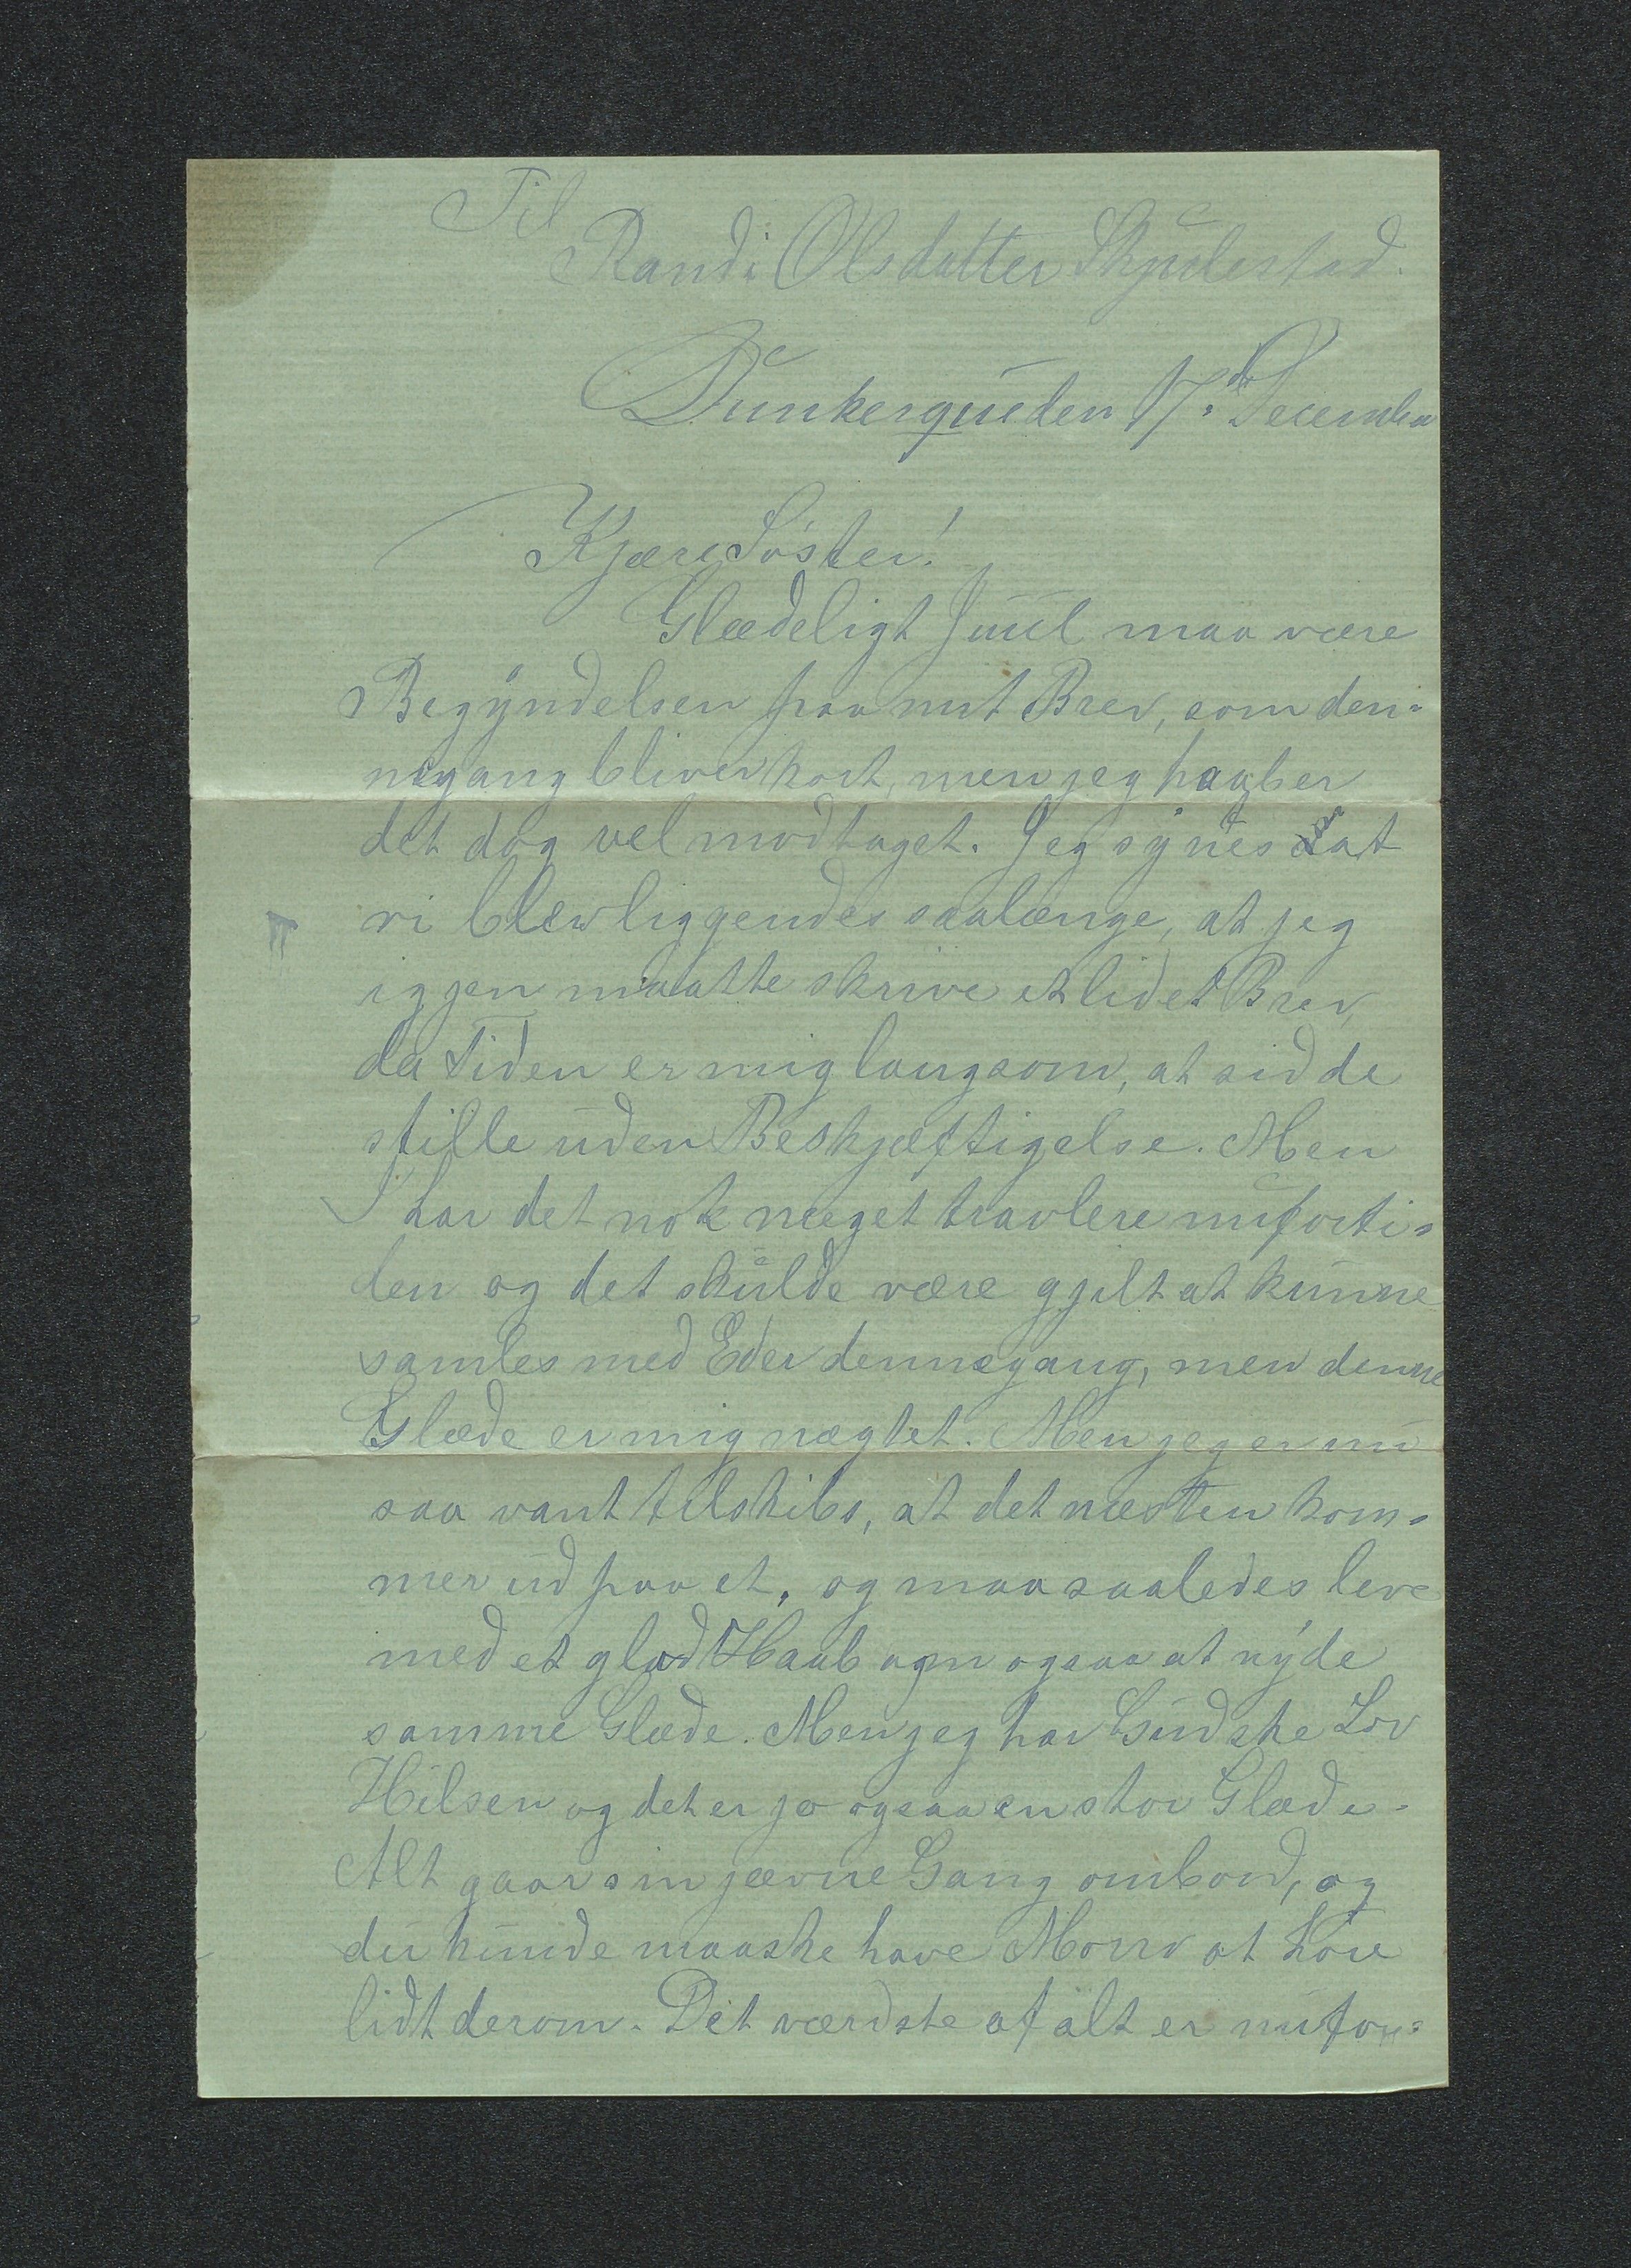 Til
Randi Olsdatter Skjülestad.
Dünkerqüe den 17de December
Kjære Söster!
Glædeligt Juul maa være
Begyndelsen paa mit Brev, som den-
negang bliver kort, men jeg haaber
det dog vel modtaget. Jeg synes at
vi blev liggendes saalænge, at jeg
igjen maatte skrive et lidet Brev,
da Tiden er mig langsom, at sidde
stille uden Beskjæftigelse. Men
I har det nok meget travlere nu forti-
den og det skulde være gjilt at kunne
samles med Eder dennegang, men denne
Glæde er mig nægtet. Men jeg er nu
saa vant tilskibs, at det næsten kom-
mer ud paa et, og maa saaledes leve
med et glad Haab om ogsaa at nyde
samme Glæde. Men jeg har Gud ske Lov
Hilsen og det er jo ogsaa en stor Glæde.
Alt gaar sin jævne Gang ombord, og
du kunde maaske have Morro at höre
lidt derom. Det værdste af alt er nu for-